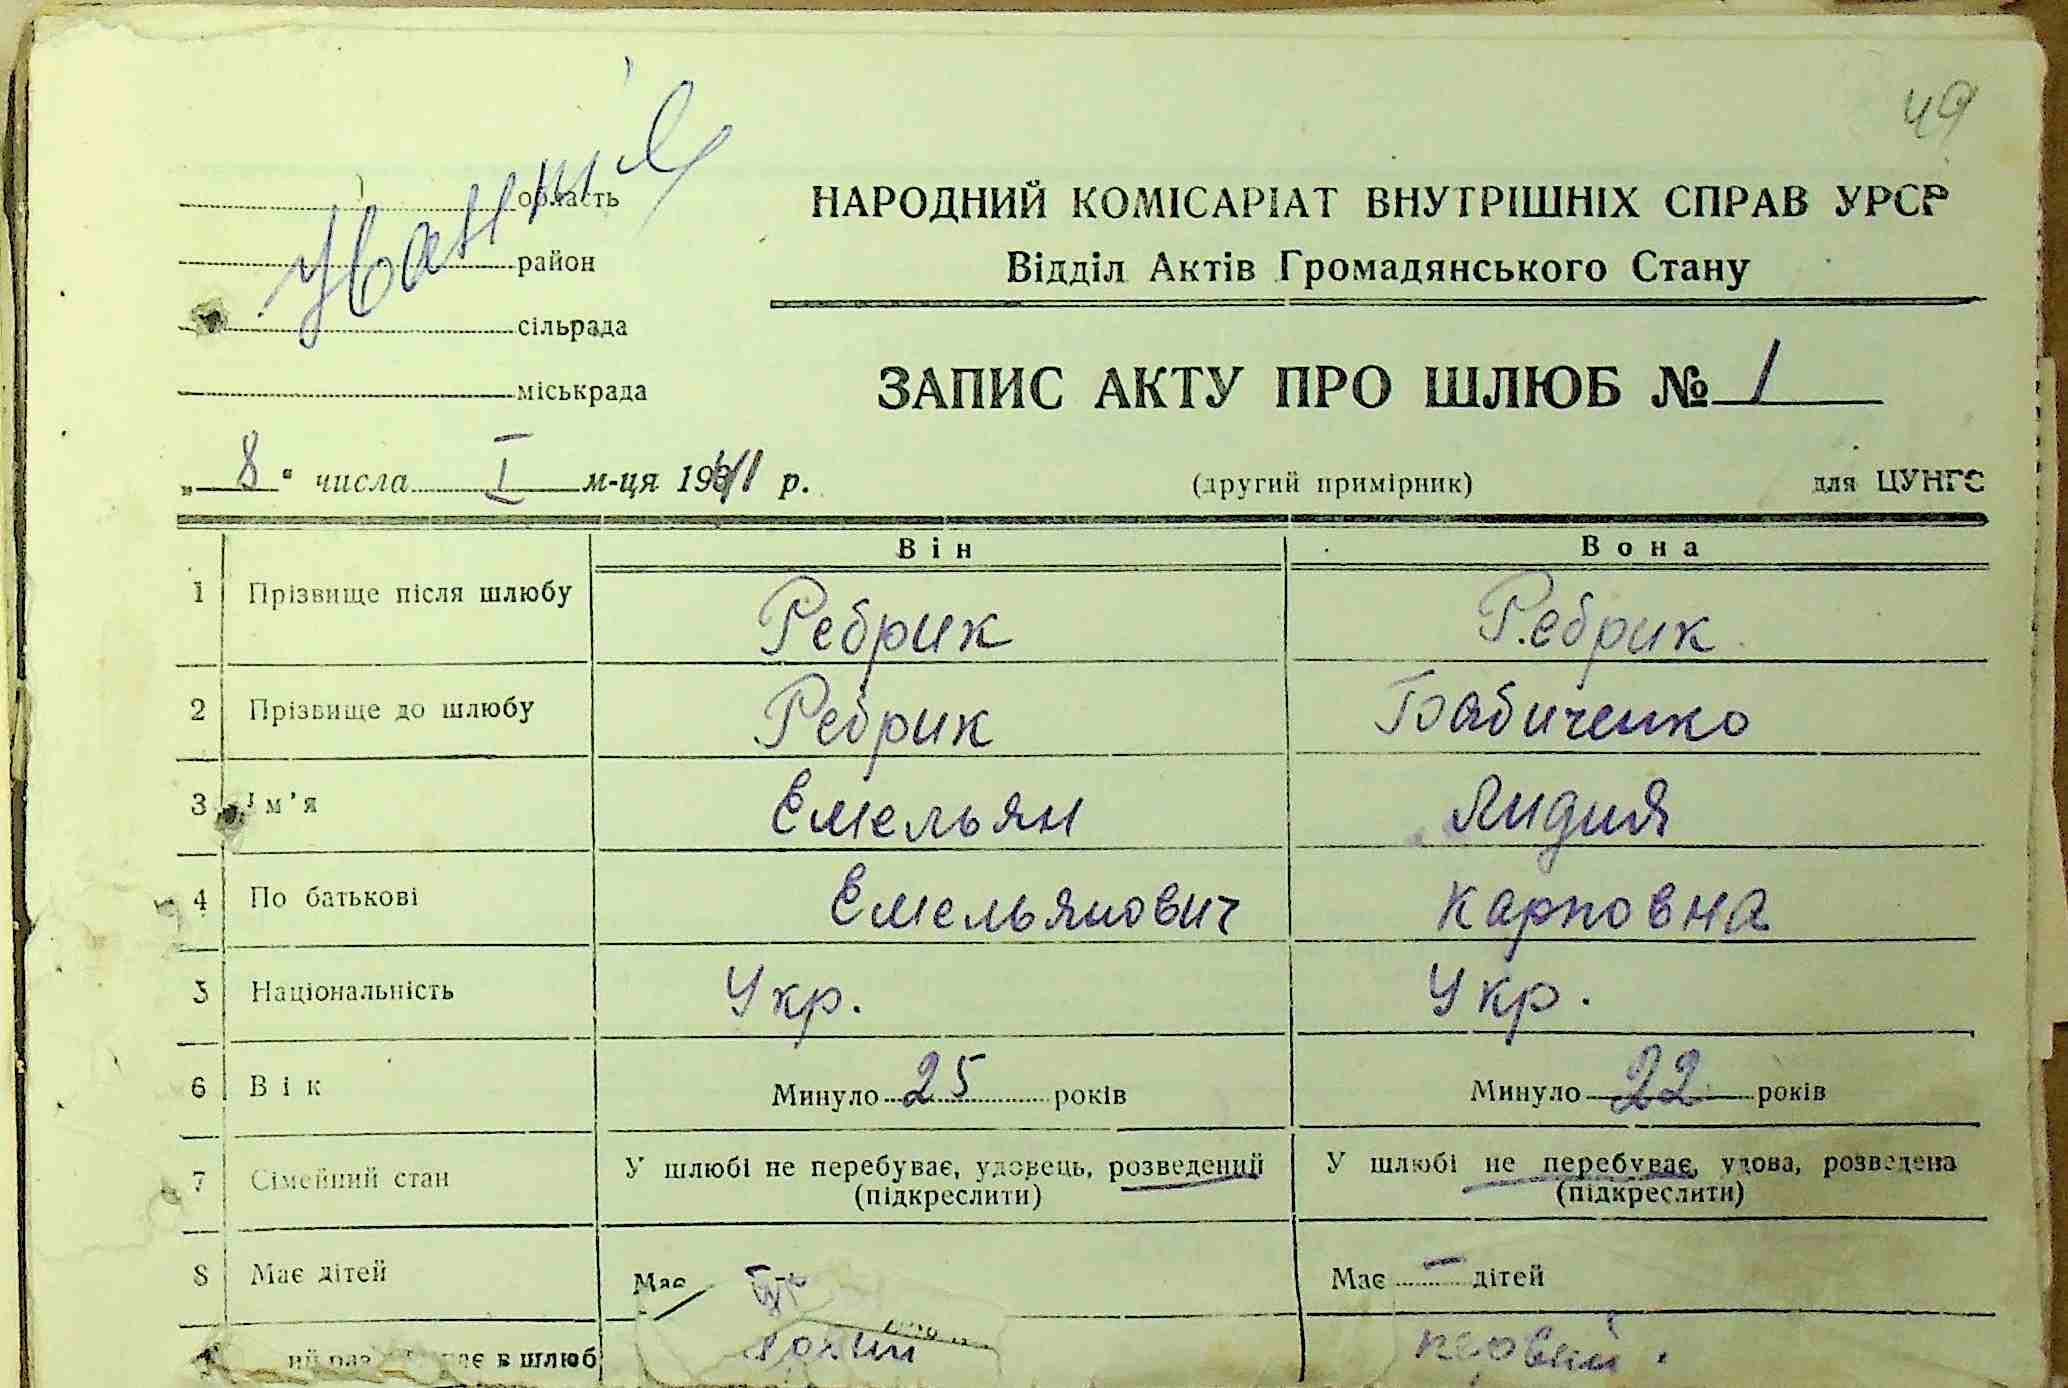 49
область
район
сільрада
міськрада
НАРОДНИЙ КОМІСАРІАТ ВНУТРІШНІХ СПРАВ УРСР
Відділ Актів Громадянського Стану
ЗАПИС АКТУ ПРО ШЛЮБ № 1
„ 8 “ числа I м-ця 1941 р.
(другий примірник) для ЦУНГС
Він Вона
1 Прізвище після шлюбу Ребрик Ребрик
2 Прізвище до шлюбу Ребрик Бабиченко
3 Ім’я Емельян Лидия
4 По батькові Емельянович Карповна
5 Національність Укр. Укр.
6 Вік Минуло 25 років Минуло 22 років
7 Сімейний стан У шлюбі не перебуває, удовець, розведений У шлюбі не перебуває, удова, розведена
(підкреслити) (підкреслити)
8 Має дітей Має Має — дітей
в шлюб первый.